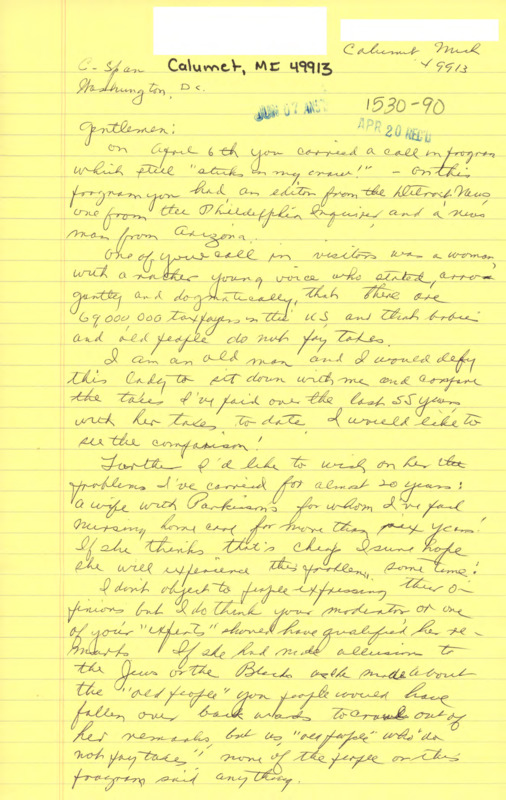 Calumet Mich
49913
C-Span Calumet, MI 49913
Washington, D.C.
1530-90
APR 20 REC'D
Gentlemen:
On April 6th you carried a call in program
which still "sticks in my craw!" - on this
program you had an editor from the Detroit News
one from the Philadelphia Inquirer, and a news
man from Arizona.
One of your call in visitors was a woman,
with a rather young voice who stated, arro-
gantly and dogmatically, that there are
69,000,000 taxpayers in the US and that babies
and old people do not pay taxes.
I am an old man and I would defy
this lady to sit down with me and compare
the taxes I've paid over the last 55 years
with her taxes to date. I would like to
see the comparison!
Further I'd like to wish on her the
problems I've carried for almost 20 years:
a wife with Parkinsons for whom I've paid
nursing home care for more than six years!
If she thinks that's cheap I sure hope
she will experience this problem some time!
I don't object to people expressing their o-
pinions but I do think your moderator or one
of your "experts" should have qualified her re-
marks. If she had made allusion to
the Jews or the Blacks as she made about
the "old people" you people would have
fallen over backwards to crawl out of
her remarks, but us "old people" who "do
not pay taxes", none of the people on this
program said anything.